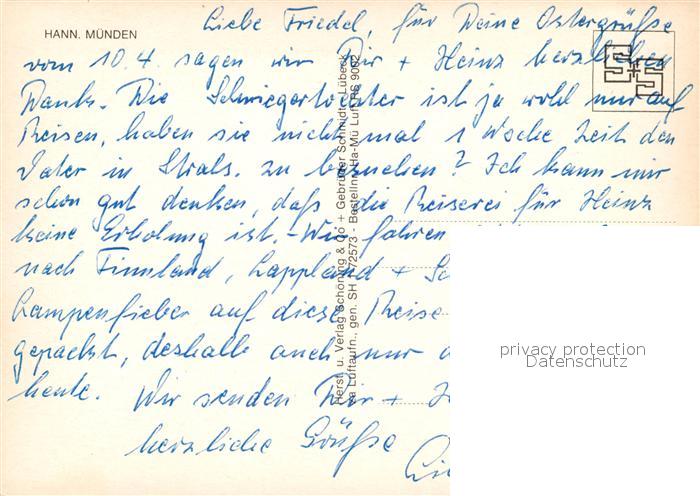 HANN. MÜNDEN
Liebe Friedel, für Deine Ostergrüße
vom 10.4. sagen wir Dir + Heinz herzlichen
Dank. Die Schwiegertochter ist ja wohl nur auf
Reisen, haben sie nicht mal 1 Woche Zeit den
Vater in Strals. zu besuchen? Ich kann mir
schon gut denken, daß die Reiserei für Heinz
keine Erholung ist. - Wir fahren
nach Finnland, Lappland +
Lampenfieber auf diese Reise
gepackt, deshalb auch nur
heute. Wir senden Dir +
herzliche Grüße
Herst. u. Verlag Schöning & Co + Gebrüder Schmidt, Lübeck
Luftaufn., gen. SH 72573 - Bestellnr. Ha-Mü Luft RS 9062
privacy protection
Datenschutz